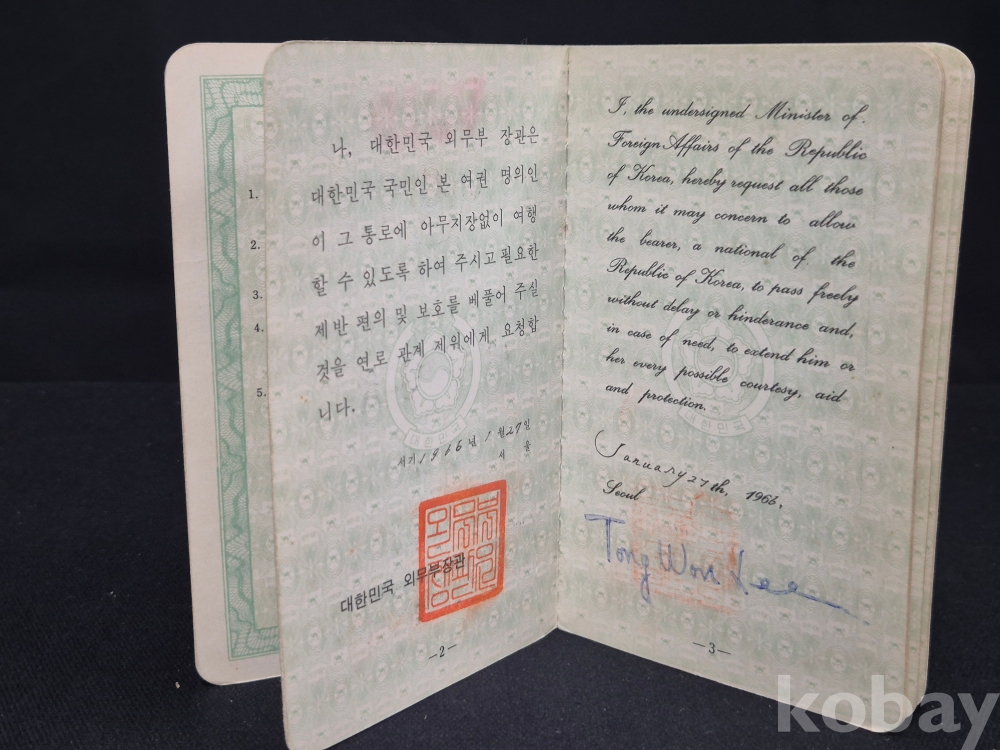 1.
2.
3.
4.
5.
나, 대한민국 외무부 장관은
대한민국 국민인 본 여권 명의인
이 그 통로에 아무지장없이 여행
할 수 있도록 하여 주시고 필요한
제반 편의 및 보호를 베풀어 주실
것을 연로 관계 제위에게 요청합
니다.
서기 1966년 1월 27일
서 울
대한민국 외무부장관
—2—
I, the undersigned Minister of
Foreign Affairs of the Republic
of Korea, hereby request all those
whom it may concern to allow
the bearer, a national of the
Republic of Korea, to pass freely
without delay or hinderance and,
in case of need, to extend him or
her every possible courtesy, aid
and protection.
대한민국
January 27th, 1966,
Seoul
Tong Won Lee
—3—
kobay